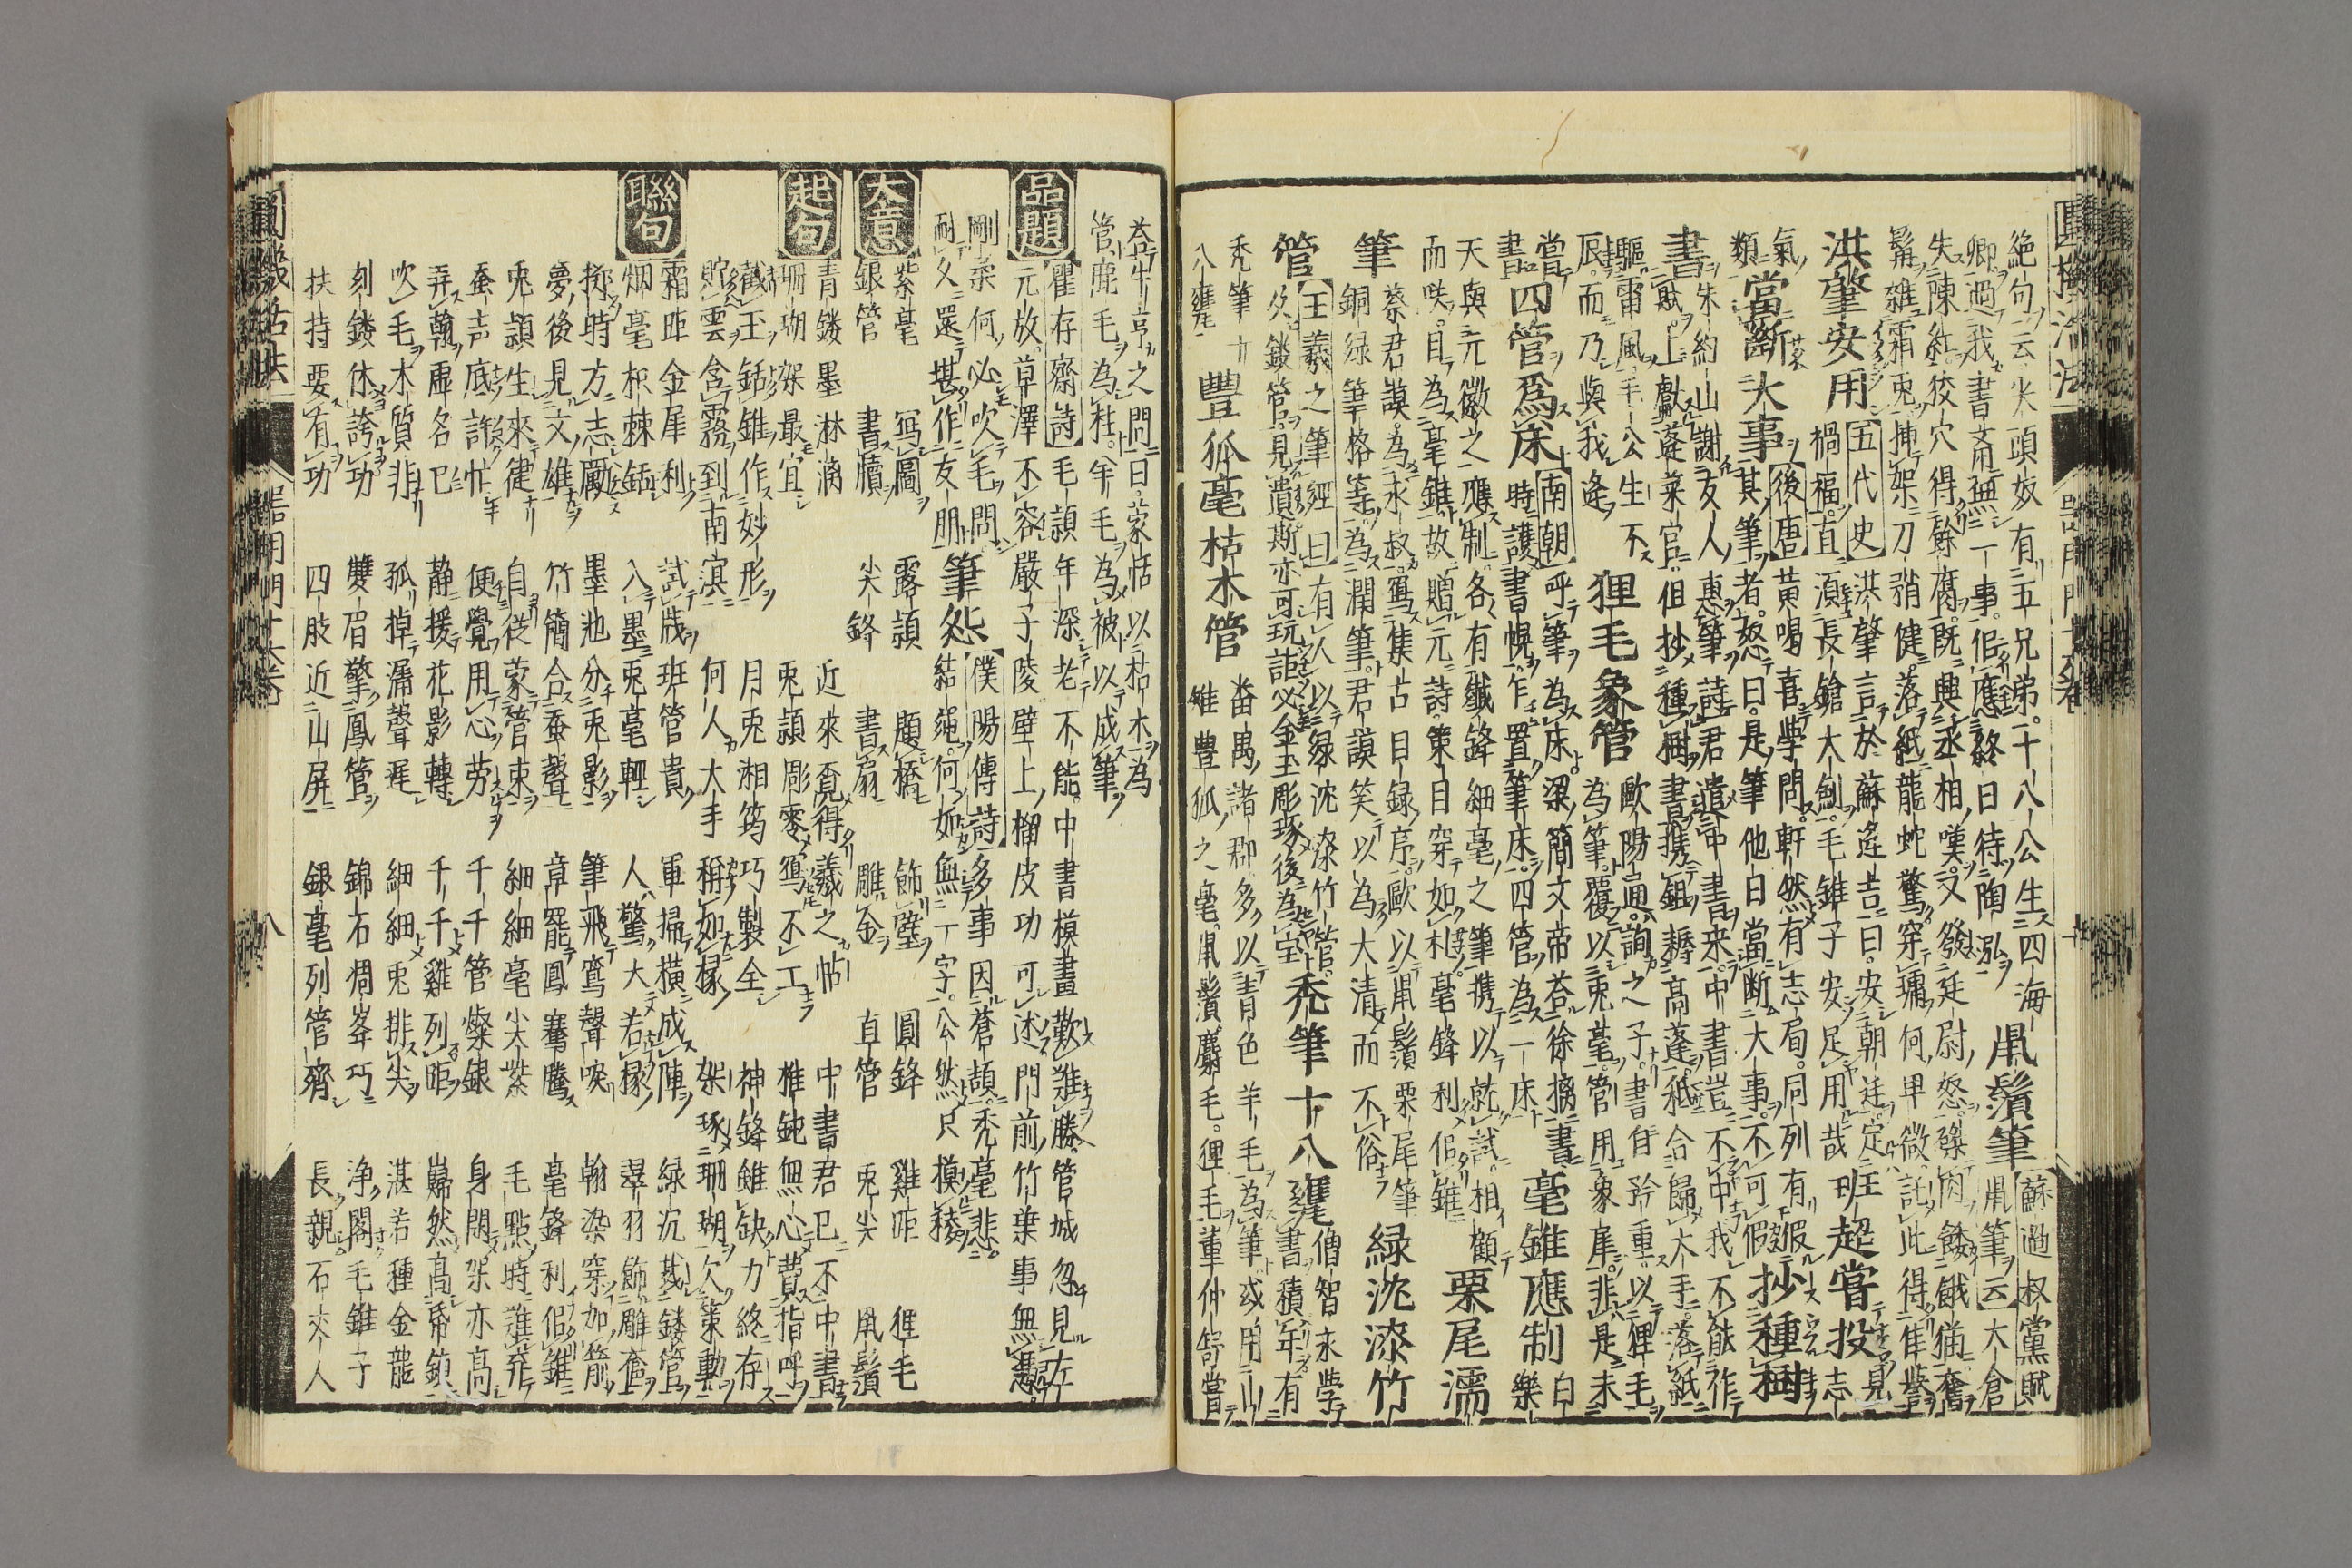 絶句云尖頭奴有五兄弟十八公生四海
鼠鬚筆
蘇過叔黨賦
卿過我書斎無一事但應終日待陶泓
鼠筆云太倉
失陳紅狡穴得餘腐既興丞相嘆又發廷尉怒磔肉餧餓猫奮
髯雜霜兎挿架刀槊健落紙龍蛇驚穿墉何卑微託此得佳誉
洪肇安用
五代史
洪肇言於蘇逢吉曰安朝廷定
禍福直須長鎗大劍毛錐子安足用哉
班超嘗投
志見
氣類
當斷大事
後唐
黄喝喜学問軒然有志局同列有
其筆者怒曰是筆他日當断大事不可假
抄種樹
書
朱約山謝友人惠筆詩君遣中書来中書豈不中我不能作
賦上獻蓬莱官但抄種樹書携鉏耨高蓬紙合歸大手落紙
驅雷風毛公生不
辰而乃與我逢
狸毛象管
歐陽通詢之子書自矜重以狸毛
為筆覆以兎毫管用象犀非是未
嘗書
四管為床
南朝
呼筆為床梁簡文帝荅徐摛書
時護書幌乍置筆床四管為一床
毫錐應制
白樂
天與元微之應制各有纖鋒細毫之筆携以就試相顧
而咲目為毫錐故贈元詩策目穿如札毫鋒利似錐
栗尾濡
筆
蔡君謨為永叔寫集古目録序歐以鼠鬚栗尾筆
銅緑筆格等為潤筆君謨笑以為大清而不俗
緑沈漆竹
管
王羲之筆經曰
有人以緑沈漆竹管
久鏤管見遺斯亦可玩詎必金玉彫琢後為宝
禿筆十八甕
僧智永学
書積年有
禿筆十
八甕
豊狐毫枯木管
畨禺諸郡多以青色羊毛為筆或用山
雉豊狐之毫鼠鬚麝毛狸毛董仲舒嘗
荅牛亨之問曰蒙恬以枯木為
管鹿毛為柱羊毛為被以成筆
品題
瞿存齋詩
毛頴年深老不能中書模畫歎誰勝管城忽見左
元放草澤不容嚴子陵壁上榴皮功可述門前竹葉事無憑
剛柔何必吹毛問
耐久還堪作友朋
筆怨
僕陽傳詩
多事因蒼頡禿毫悲
結縄何如無一字公然只摸稜
大意
紫毫　寫圖　露頴　題橋　飾璧　圓鋒　雞距　狸毛
銀管　書牘　尖鋒　書扇　雕金　直管　兎尖　鼠鬚
起句
青鏤墨淋漓　近來覓得羲之帖　中書君已不中書
珊瑚架最宜　兎頴彫零寫不工　椎鈍無心費指呼
截玉銛錐作妙形　月兎湘筠巧製全　神鋒錐缺力終存
貯雲含霧到南溟　何人大手稱如椽　架琢珊瑚久策動
聯句
霜距金犀利　試牋班管貴　軍掃横成陣　緑沉㦸鏤管
烟毫枳棘銛　入墨兎毫輕　人驚大若椽　翠羽飾雕奩
擲時方志厭　墨池分兎影　筆飛鸞聳唳　翰染穿如箭
夢後見文雄　竹簡合蚕聲　章罷鳳騫騰　毫鋒利似錐
兎頴生來健　自従蒙管束　細細毫尖紫　毛點時誰弄
蚕声底許忙　便覺用心労　千千管燦銀　身閑架亦高
弄翰虚名已　静援花影轉　千千雞列距　巋然高帋鎮
吹毛木質非　孤掉漏聲遲　細細兎排尖　湛若種金龍
刻鏤休誇功　雙眉擎鳳管　錦石㨄峯巧　浄閣毛錐子
扶持要有功　四肢近山屏　銀毫列管齊　長親石丈人
器用門
八